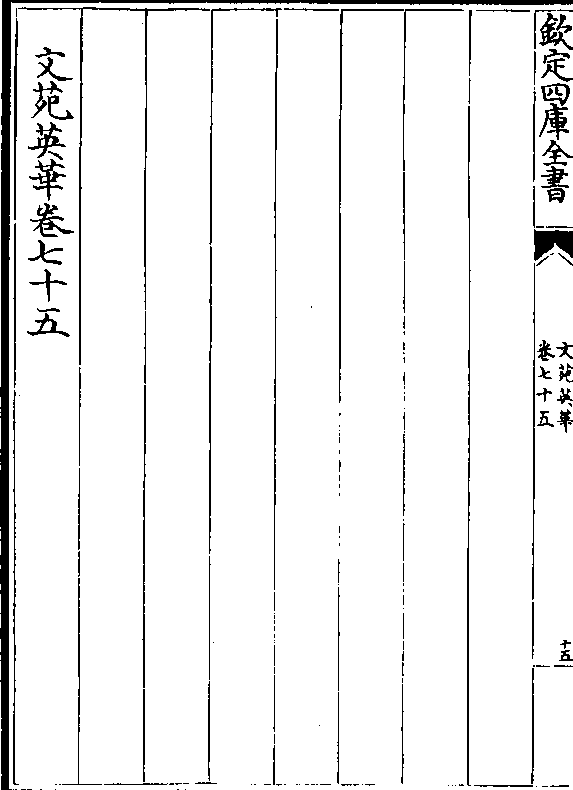 欽定四庫全書
文苑英華
卷七十五
十五
文苑英華卷七十五